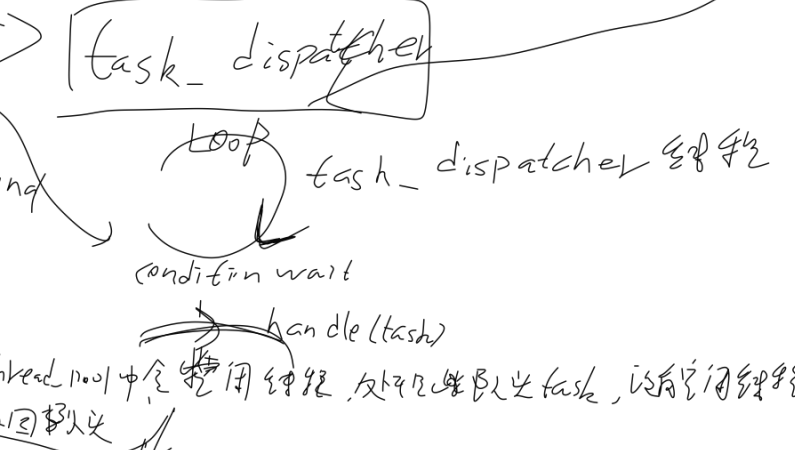 task_ dispatcher
Loop
task_ dispatcher 线程
conditin wait
handle(task)
hread_pool中 空闲线程,处理 队头task,没有空闲线程
回 队头